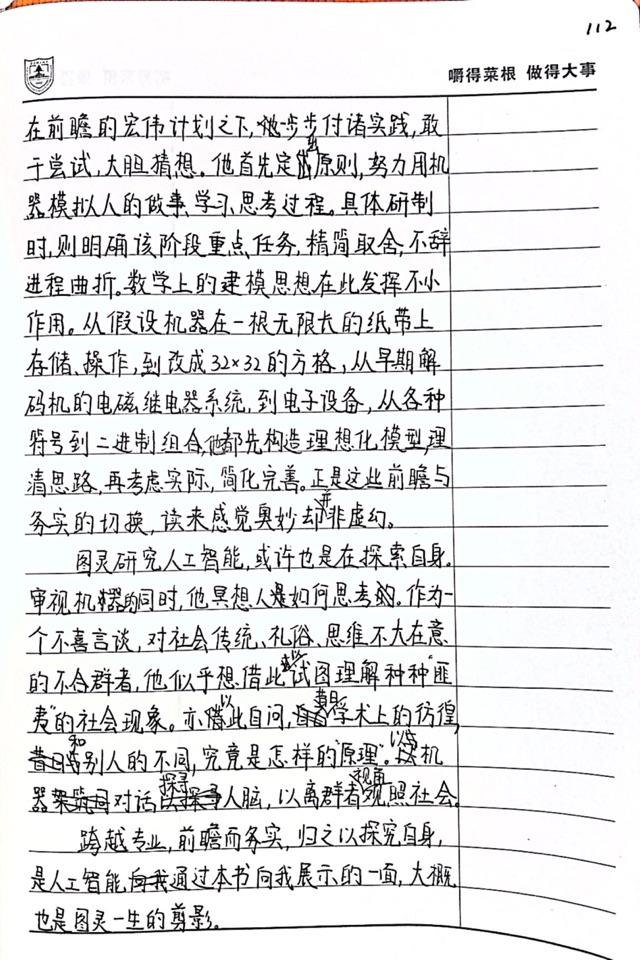 112
嚼得菜根 做得大事
在前瞻的宏伟计划之下,他步步付诸实践,敢
于尝试,大胆猜想。他首先定出原则,努力用机
器模拟人的做事、学习、思考过程。具体研制
时,则明确该阶段重点、任务,精简取舍,不辞
进程曲折。数学上的建模思想在此发挥不小
作用。从假设机器在一根无限长的纸带上
存储、操作,到改成32×32的方格,从早期解
码机的电磁继电器系统,到电子设备,从各种
符号到二进制组合,他都先构造理想化模型,理
清思路,再考虑实际,简化完善。正是这些前瞻与
务实的切换,读来感觉奥妙却并非虚幻。
图灵研究人工智能,或许也是在探索自身。
审视机器的同时,他冥想人是如何思考的。作为一
个不喜言谈,对社会传统、礼俗、思维不大在意
的不合群者,他似乎想借此试图理解种种“匪
夷”的社会现象。亦以此自问,学术上的彷徨,
和别人的不同,究竟是怎样的“原理”。以与机
器对话探寻人脑,以离群者视角观照社会。
跨越专业,前瞻而务实,归之以探究自身,
是人工智能通过本书向我展示的一面,大概
也是图灵一生的剪影。